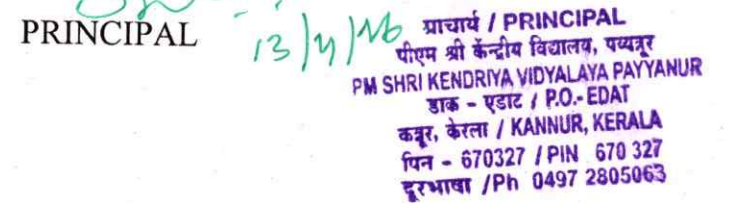 PRINCIPAL
प्राचार्य / PRINCIPAL
पीएम श्री केन्द्रीय विद्यालय, पय्यनूर
PM SHRI KENDRIYA VIDYALAYA PAYYANUR
डाक - एडाट / P.O.- EDAT
कन्नूर, केरला / KANNUR, KERALA
पिन - 670327 / PIN 670 327
दूरभाषा /Ph 0497 2805063